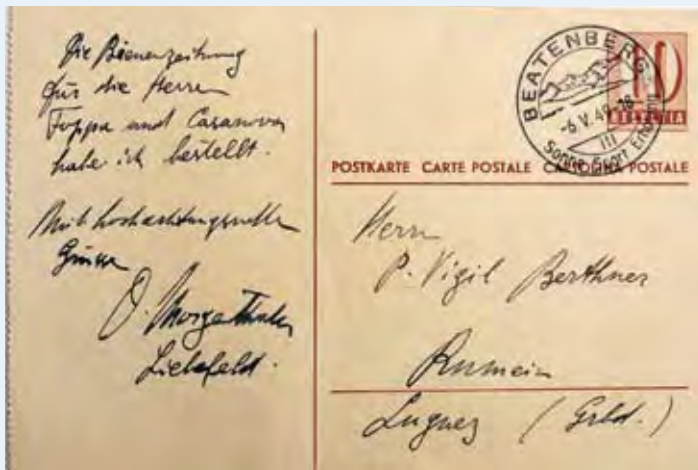 Die Bienenzeitung
für die Herren
Foppa und Casanova
habe ich bestellt.
Mit hochachtungsvollen
Grüssen
O. Morgenthaler
Liebefeld.
BEATENBERG
-6.V.48-18
III
Sonne Sport Erholung
10
HELVETIA
POSTKARTE CARTE POSTALE CARTOLINA POSTALE
Herrn
P. Vigil Berther
Rumein
Lugnez (Grbd.)